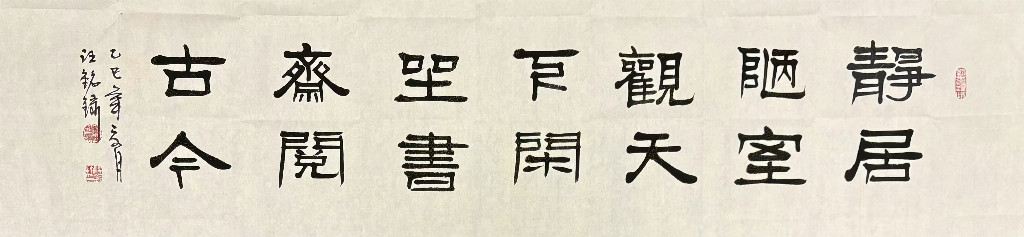 靜居
陋室
觀天
下閑
坐書
齋閱
古今
乙巳年六月
汪銘